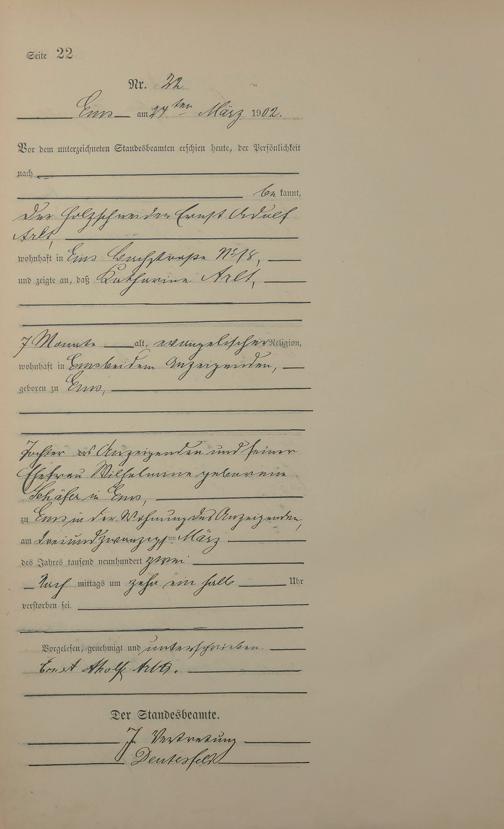 Seite 22
Nr. 22
Ems am 24ten März 1902.
Vor dem unterzeichneten Standesbeamten erschien heute, der Persönlichkeit
nach
be kannt,
der Holzschneider Ernst Adolf
Arlt,
wohnhaft in Ems Bachstraße No 18,
und zeigte an, daß Katharine Arlt,
7 Monate alt, evangelischer Religion,
wohnhaft in Ems bei dem Anzeigenden,
geboren zu Ems,
Tochter des Anzeigenden und seiner
Ehefrau Wilhelmine geborene
Schäfer in Ems,
zu Ems in der Wohnung des Anzeigenden,
am dreiundzwanzigsten März
des Jahres tausend neunhundert zwei
Nach mittags um zehn ein halb Uhr
verstorben sei.
Vorgelesen, genehmigt und unterschrieben.
Ernst Adolf Arlt.
Der Standesbeamte.
J. Vertretung